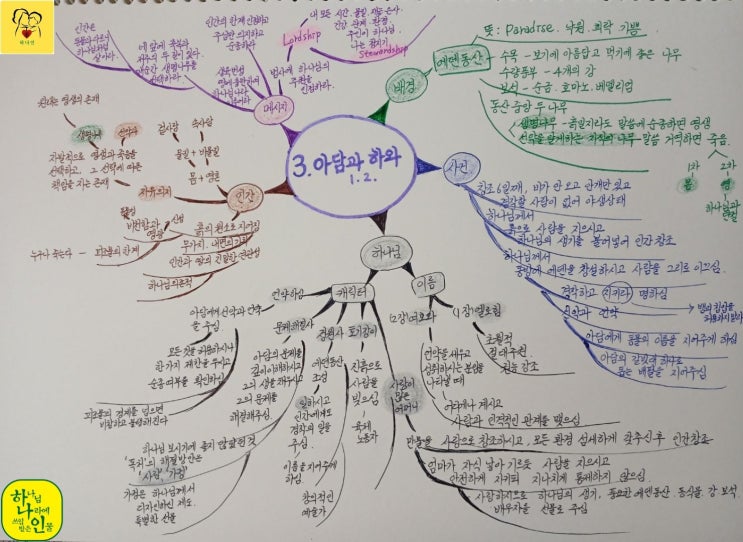 3. 아담과 하와
1. 2.
배경
에덴동산
뜻: Paradise. 낙원. 쾌락 기쁨
수목 - 보기에 아름답고 먹기에 좋은 나무
수량풍부 - 4개의 강
보석 : 순금. 호마노. 베델리엄
동산 중앙 두 나무
생명나무 - 흙일지라도 말씀에 순종하면 영생
선악을 알게하는 지식의 나무 말씀 거역하면 죽음.
1차
몸
2차
영
하나님과
단절
사건
창조 6일째, 비가 안 오고 안개만 있고
경작할 사람이 없어 야생상태
하나님께서
흙으로 사람을 지으시고
하나님의 생기를 불어넣어 인간창조
하나님께서
동방에 에덴을 창설하시고 사람을 그리로 이끄심.
경작하고 지키라 명하심
선악과 언약
아담에게 동물의 이름을 지어주게 하심
아담의 갈빗대 하나로
돕는 배필을 지어주심
하나님
이름
(1장) 엘로힘
초월적
절대주권
권능 강조
(2장) 여호와
언약을 세우고
성취하시는 분임을
나타낼 때
어디에나 계시고
사람과 인격적인 관계를 맺으심
캐릭터
사랑이
많은
어머니
만물을 사람으로 창조하시고, 모든 환경 섬세하게 갖추신 후 인간창조
엄마가 자식 낳아 기르듯 사람을 지으시고
안전하게 지키되 지나치게 통제하지 않으심.
사랑하시므로 하나님의 생기, 풍요한 에덴동산. 동식물. 강 보석.
배우자를 선물로 주심
토기장이
진흙으로
사람을
빚으심
육체
노동자
정원사
에덴동산
조성
일하시고
인간에게도
경작의 일을
주심
이름을 지어주게
하심
창의적인
예술가
문제해결사
아담의 문제를
깊이 이해하시고
그의 생을 채우시고
그의 문제를
해결해주심.
하나님 보시기에 좋지 않았던 것
'독처'의 해결방안은
'사랑', '가정'
가정은 하나님께서
디자인하신 제도.
특별한 선물
언약하심
아담에게 선악과 언약
을 주심
모든 것을 허용하시나
한가지 제한을 두시고
순종여부를 확인하심
피조물의 경계를 넘으면
비참하고 불행해진다
인간
자유의지
자발적으로 영생과 죽음을
선택하고, 그 선택에 따른
책임을 지는 존재
생명나무
선악과
몸 + 영혼
물질 + 비물질
흙의 원소로 지어짐
무가치. 내면의 가치
인간과 땅의 긴밀한 연관성
하나님 의존적
피조물의 한계
누구나 죽는다
비천함과
영광
메시지
Lordship
내 모든 시간. 물질. 재능 은사.
건강. 관계. 환경
주인은 하나님.
나는 청지기,
Stewardship
범사에 하나님의
주권을
인정하라.
인간의 한계 인정하고
주님만 의지하고
순종하라
네 앞에 축복과
저주의 두 길이 있다.
매순간 생명나무를
선택하라
인간은
하나님의
하나님
나라에
쓰임
받은
인물